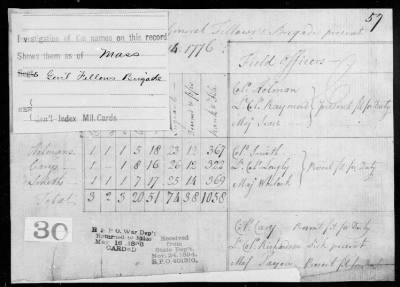 57
Investigation of the names on this record
Shows them as of Mass
Genl Fellows Brigade
Gen'l Index Mil. Cards
General Fellows's Brigade present
1776
Field Officers
Colo Holman
Lt Colo Raymond Present fit for Duty
Majr
Holmans 1 1 1 5 18 23 12 367
Carys 1 1 8 16 26 12 322
Smiths 1 1 7 17 25 14 369
Total 3 2 3 20 51 74 38 1058
Colo Smith
Lt Colo Present fit for Duty
Majr Whitlock
Colo Cary Present fit for Duty
Lt Colo Richardson Sick present
Majr Present fit for Duty
30
R & P O. War Dep't
Returned to Files
May 16 1898
CARDED
Received
from
State Dep't.
Nov. 24, 1894.
R. P. O.